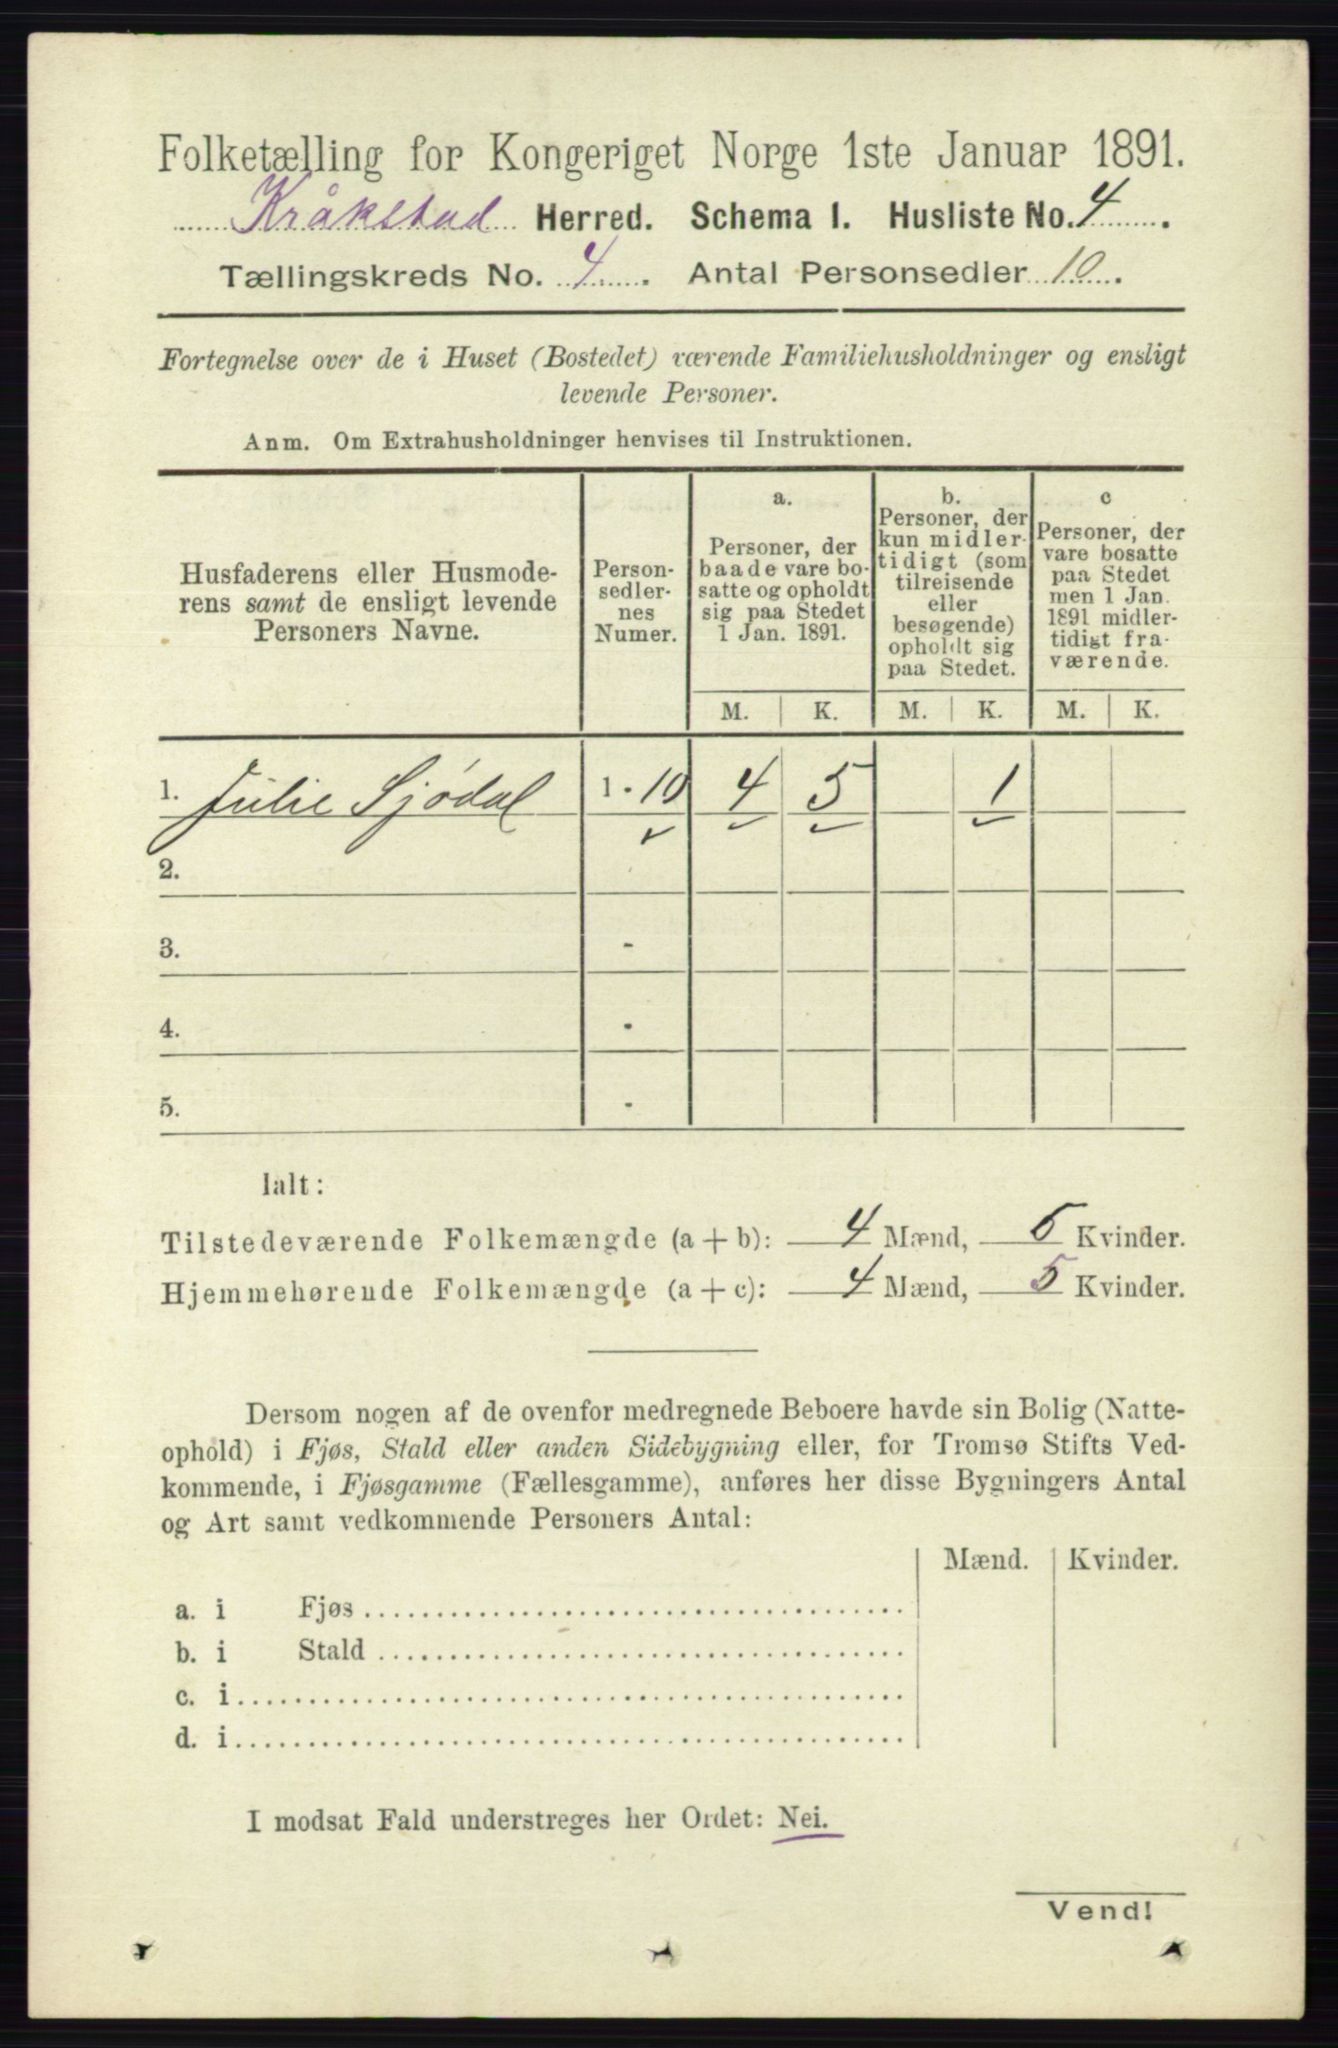 Folketælling for Kongeriget Norge 1ste Januar 1891.
Kråkstad Herred. Schema 1. Husliste No. 4.
Tællingskreds No. 4. Antal Personsedler 10.
Fortegnelse over de i Huset (Bostedet) værende Familiehusholdninger og ensligt
levende Personer.
Anm. Om Extrahusholdninger henvises til Instruktionen.
Husfaderens eller Husmode-
rens samt de ensligt levende
Personers Navne.
Person-
sedler-
nes
Numer.
a.
Personer, der
baade vare bo-
satte og opholdt
sig paa Stedet
1 Jan. 1891.
b.
Personer, der
kun midler-
tidigt (som
tilreisende
eller
besøgende)
opholdt sig
paa Stedet.
c
Personer, der
vare bosatte
paa Stedet
men 1 Jan.
1891 midler-
tidigt fra-
værende.
M. K. M. K. M. K.
1. Julie Sjødal 1 - 10 4 5 1
2.
3. -
4. -
5. -
Ialt:
Tilstedeværende Folkemængde (a + b): 4 Mænd, 6 Kvinder.
Hjemmehørende Folkemængde (a + c): 4 Mænd, 5 Kvinder.
Dersom nogen af de ovenfor medregnede Beboere havde sin Bolig (Natte-
ophold) i Fjøs, Stald eller anden Sidebygning eller, for Tromsø Stifts Ved-
kommende, i Fjøsgamme (Fællesgamme), anføres her disse Bygningers Antal
og Art samt vedkommende Personers Antal:
Mænd. Kvinder.
a. i Fjøs
b. i Stald
c. i
d. i
I modsat Fald understreges her Ordet: Nei.
Vend!